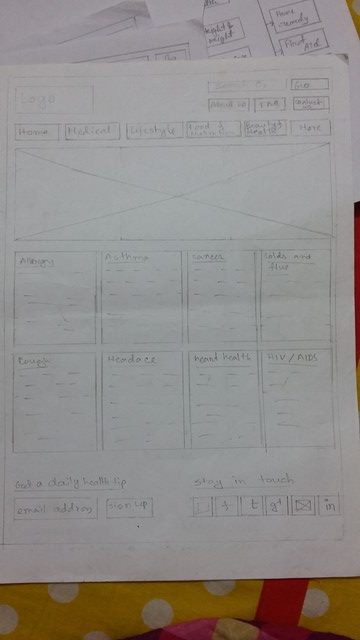 Home
remedy
First Aid
height &
weight
Logo
Go
About us
FAQ
Contact
us
Home
Medical
Lifestyle
Food &
Beauty &
More
Allergy
Asthma
Cancer
Colds and
flue
Cough
Headace
heart health
HIV/AIDS
Get a daily health tip
email addres
sign up
stay in touch
f
t
g+
in